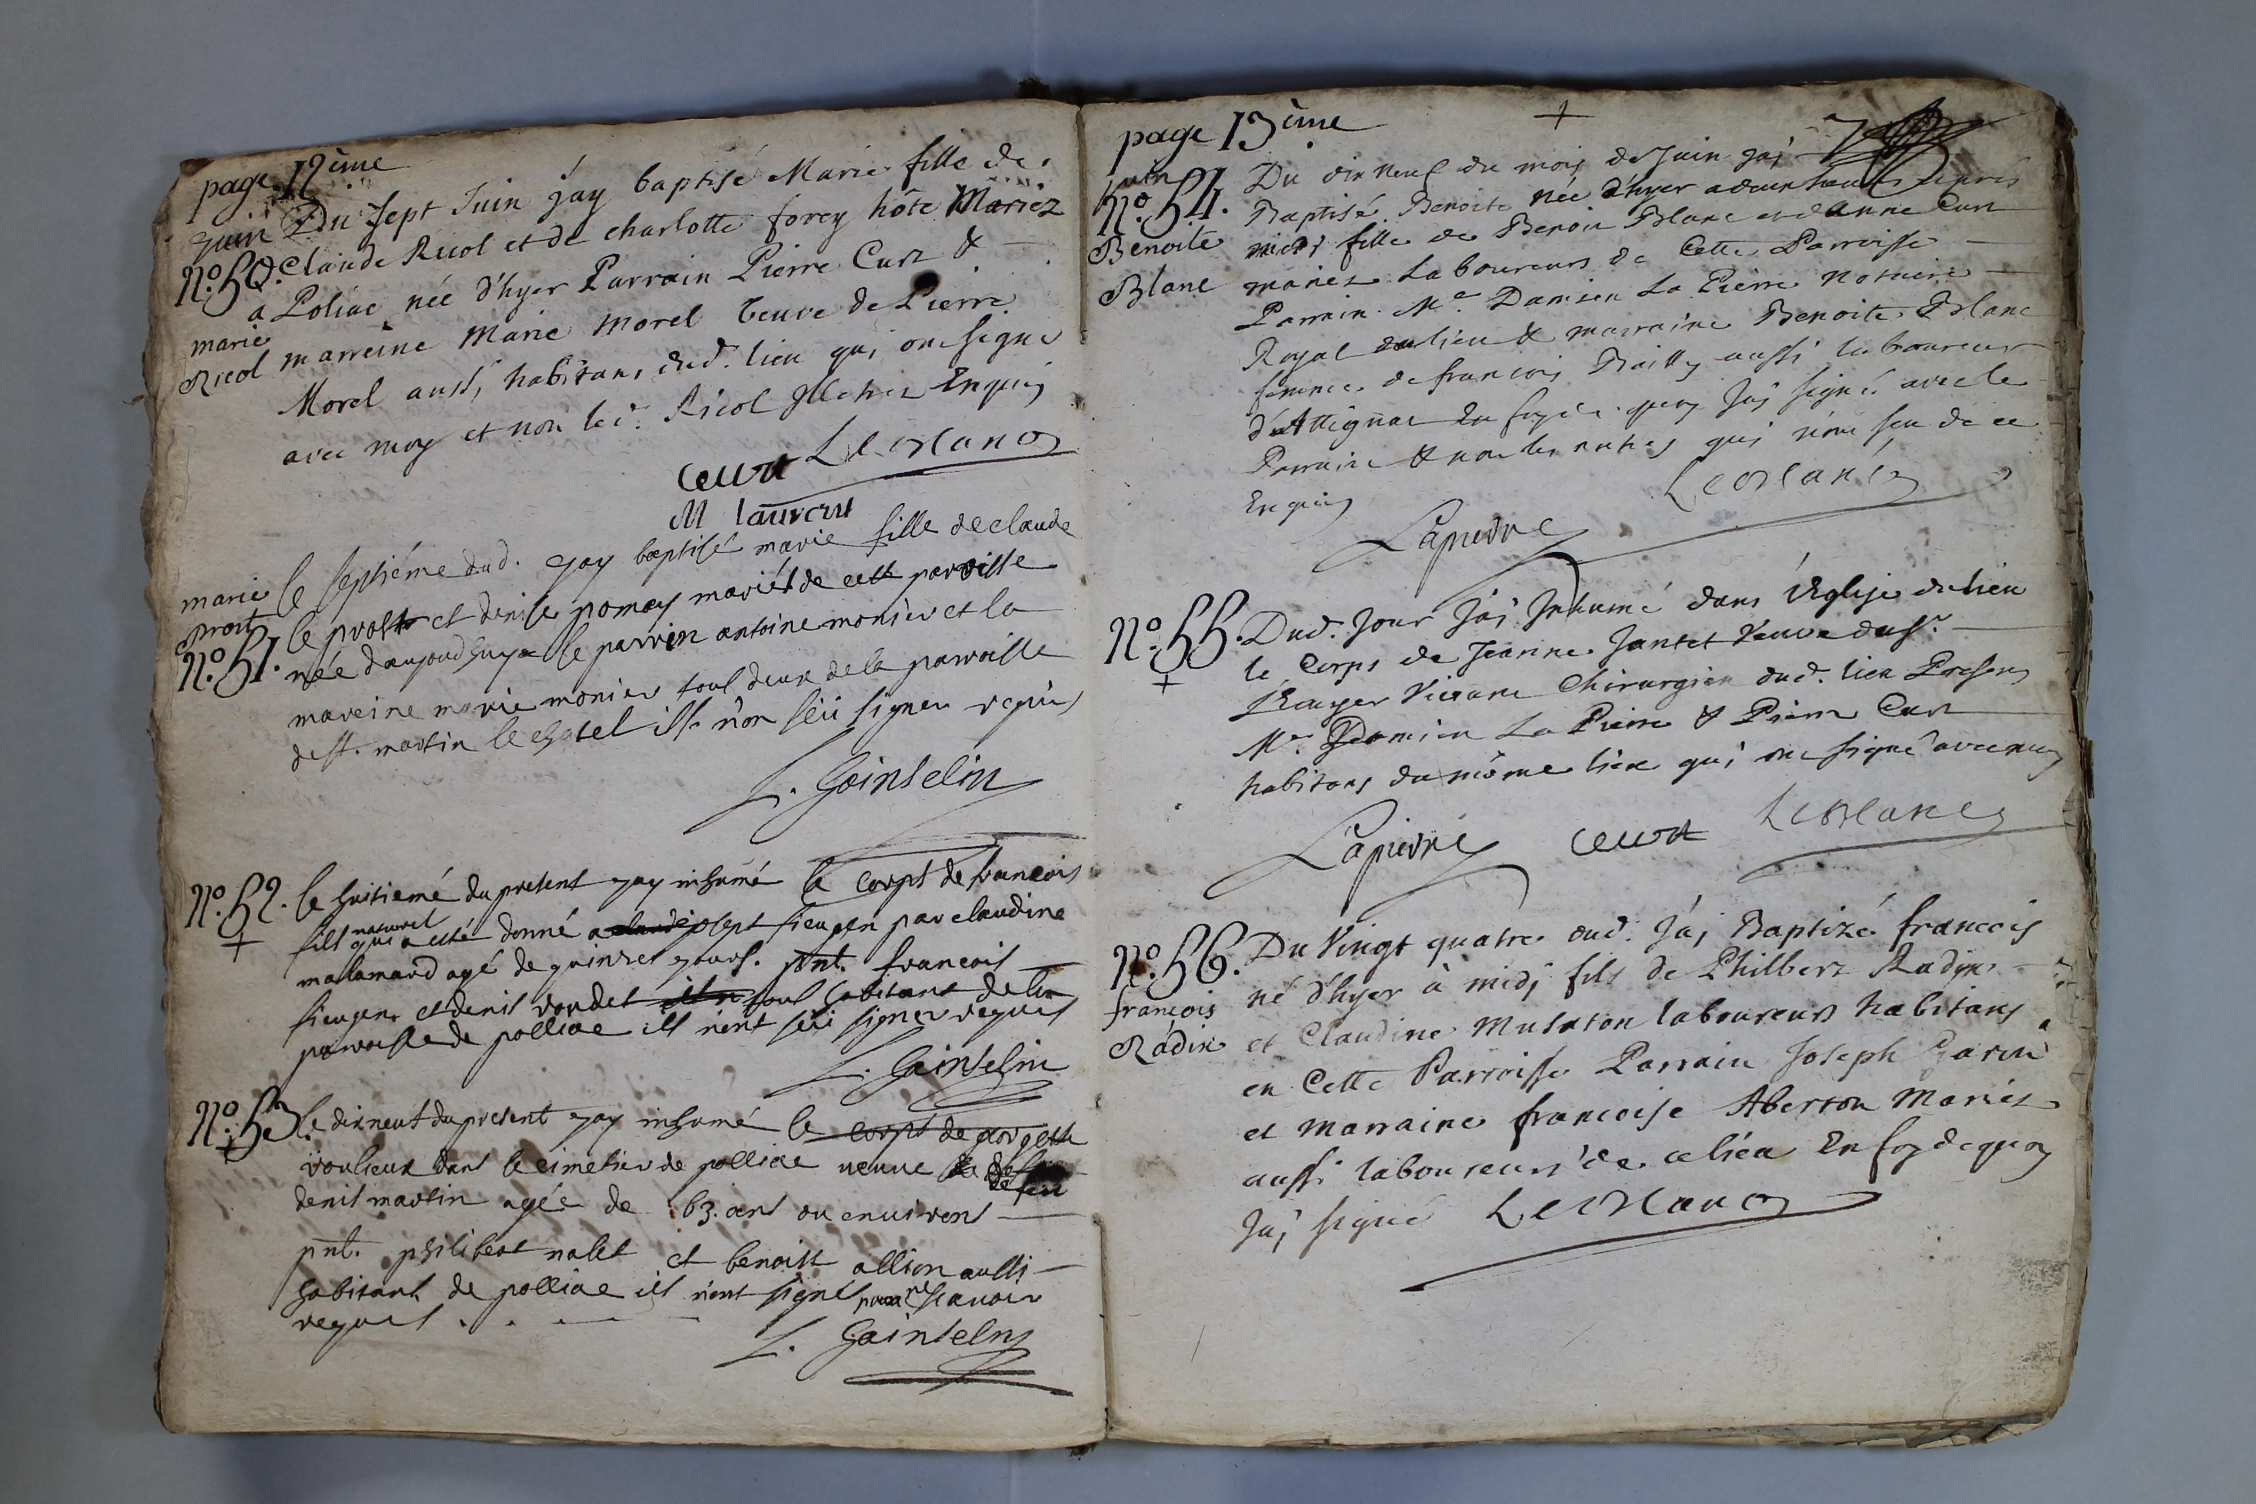 page 12ème
Juin Du Sept Juin j'ay baptisé Marie fille de
N.º 50. Claude Ricol et de charlotte forey hôte Mariez
a Poliac née d'hyer Parrain Pierre Curt &
marie
Ricol marreine Marie Morel veuve de Pierre
Morel aussi habitans dud. lieu qui ont signé
avec moy et non led. Ricol Illetrez Enquis
Leblanc
Ceurt
M laurent
marie
prost
N.º 51.
le septiéme dud. jay baptisé marie fille de claude
le prost et denise pomey mariés de cette parroisse
née daujourdhuy le parrin antoine monier et la
mareine marie monier tout deux de la paroisse
de st. martin le chatel ils n'on seü signer requis
Goinselin
N.º 52.
+
le huitiemé du present jay inhumé le corps de francois
fils naturel qui a esté donné a josept sieugen par claudine
malamard agé de quinzes jours. pnt. francois
sieugen et denis vondet tous habitant de la
paroisse de polliac ils n'ont seü signer requis
Goinselin
N.º 53.
+
le dixneuf du present jay inhumé le corps de
voulieux dans le cimetier de polliac veuve de defeu
denis martin agée de 63. ans ou environs
pnt. philibert nalet et benoist allion aussi
habitant de polliac ils n'ont signé pour ne scavoir
requis
Goinseln
page 13ème
+
Juin
N.º 54.
Benoite
Blanc
Du dix neuf du mois de Juin jai
Baptisé Benoite née d'hyer a deux heures après
midi fille de Benoit Blanc et d'Anne Curt
mariez Laboureurs de Cette Parroisse
Parrain M.e Damien La Pierre Notaire
Royal dud lieu & marraine Benoite Blanc
femme de francois Bailly aussi laboureur
d'Attignat En foy de quoy J'ai signé avec le
Parrain & non les autres qui n'ont seu de ce
Enquis
Leblanc
Lapierre
N.º 55.
+
Dud. Jour J'ai Inhumé dans l'Eglise du lieu
le Corps de Jeanne Jantet Veuve du Sr.
Royer Vivant Chirurgien dud. lieu Presens
M.e Damien La Pierre & Pierre Curt
habitans du même lieu qui ont signé avec moy
Lapierre Ceurt Leblanc
N.º 56.
francois
Radix
Du Vingt quatre dud. J'ai Baptizé francois
né d'hyer à midi fils de Philbert Radix
et Claudine Musaton laboureurs habitans
en Cette Parroisse Parrain Joseph Garin
et Marraine francoise Aberton Mariez
aussi laboureurs de ce lieu En foy de quoy
J'ai signé Leblanc